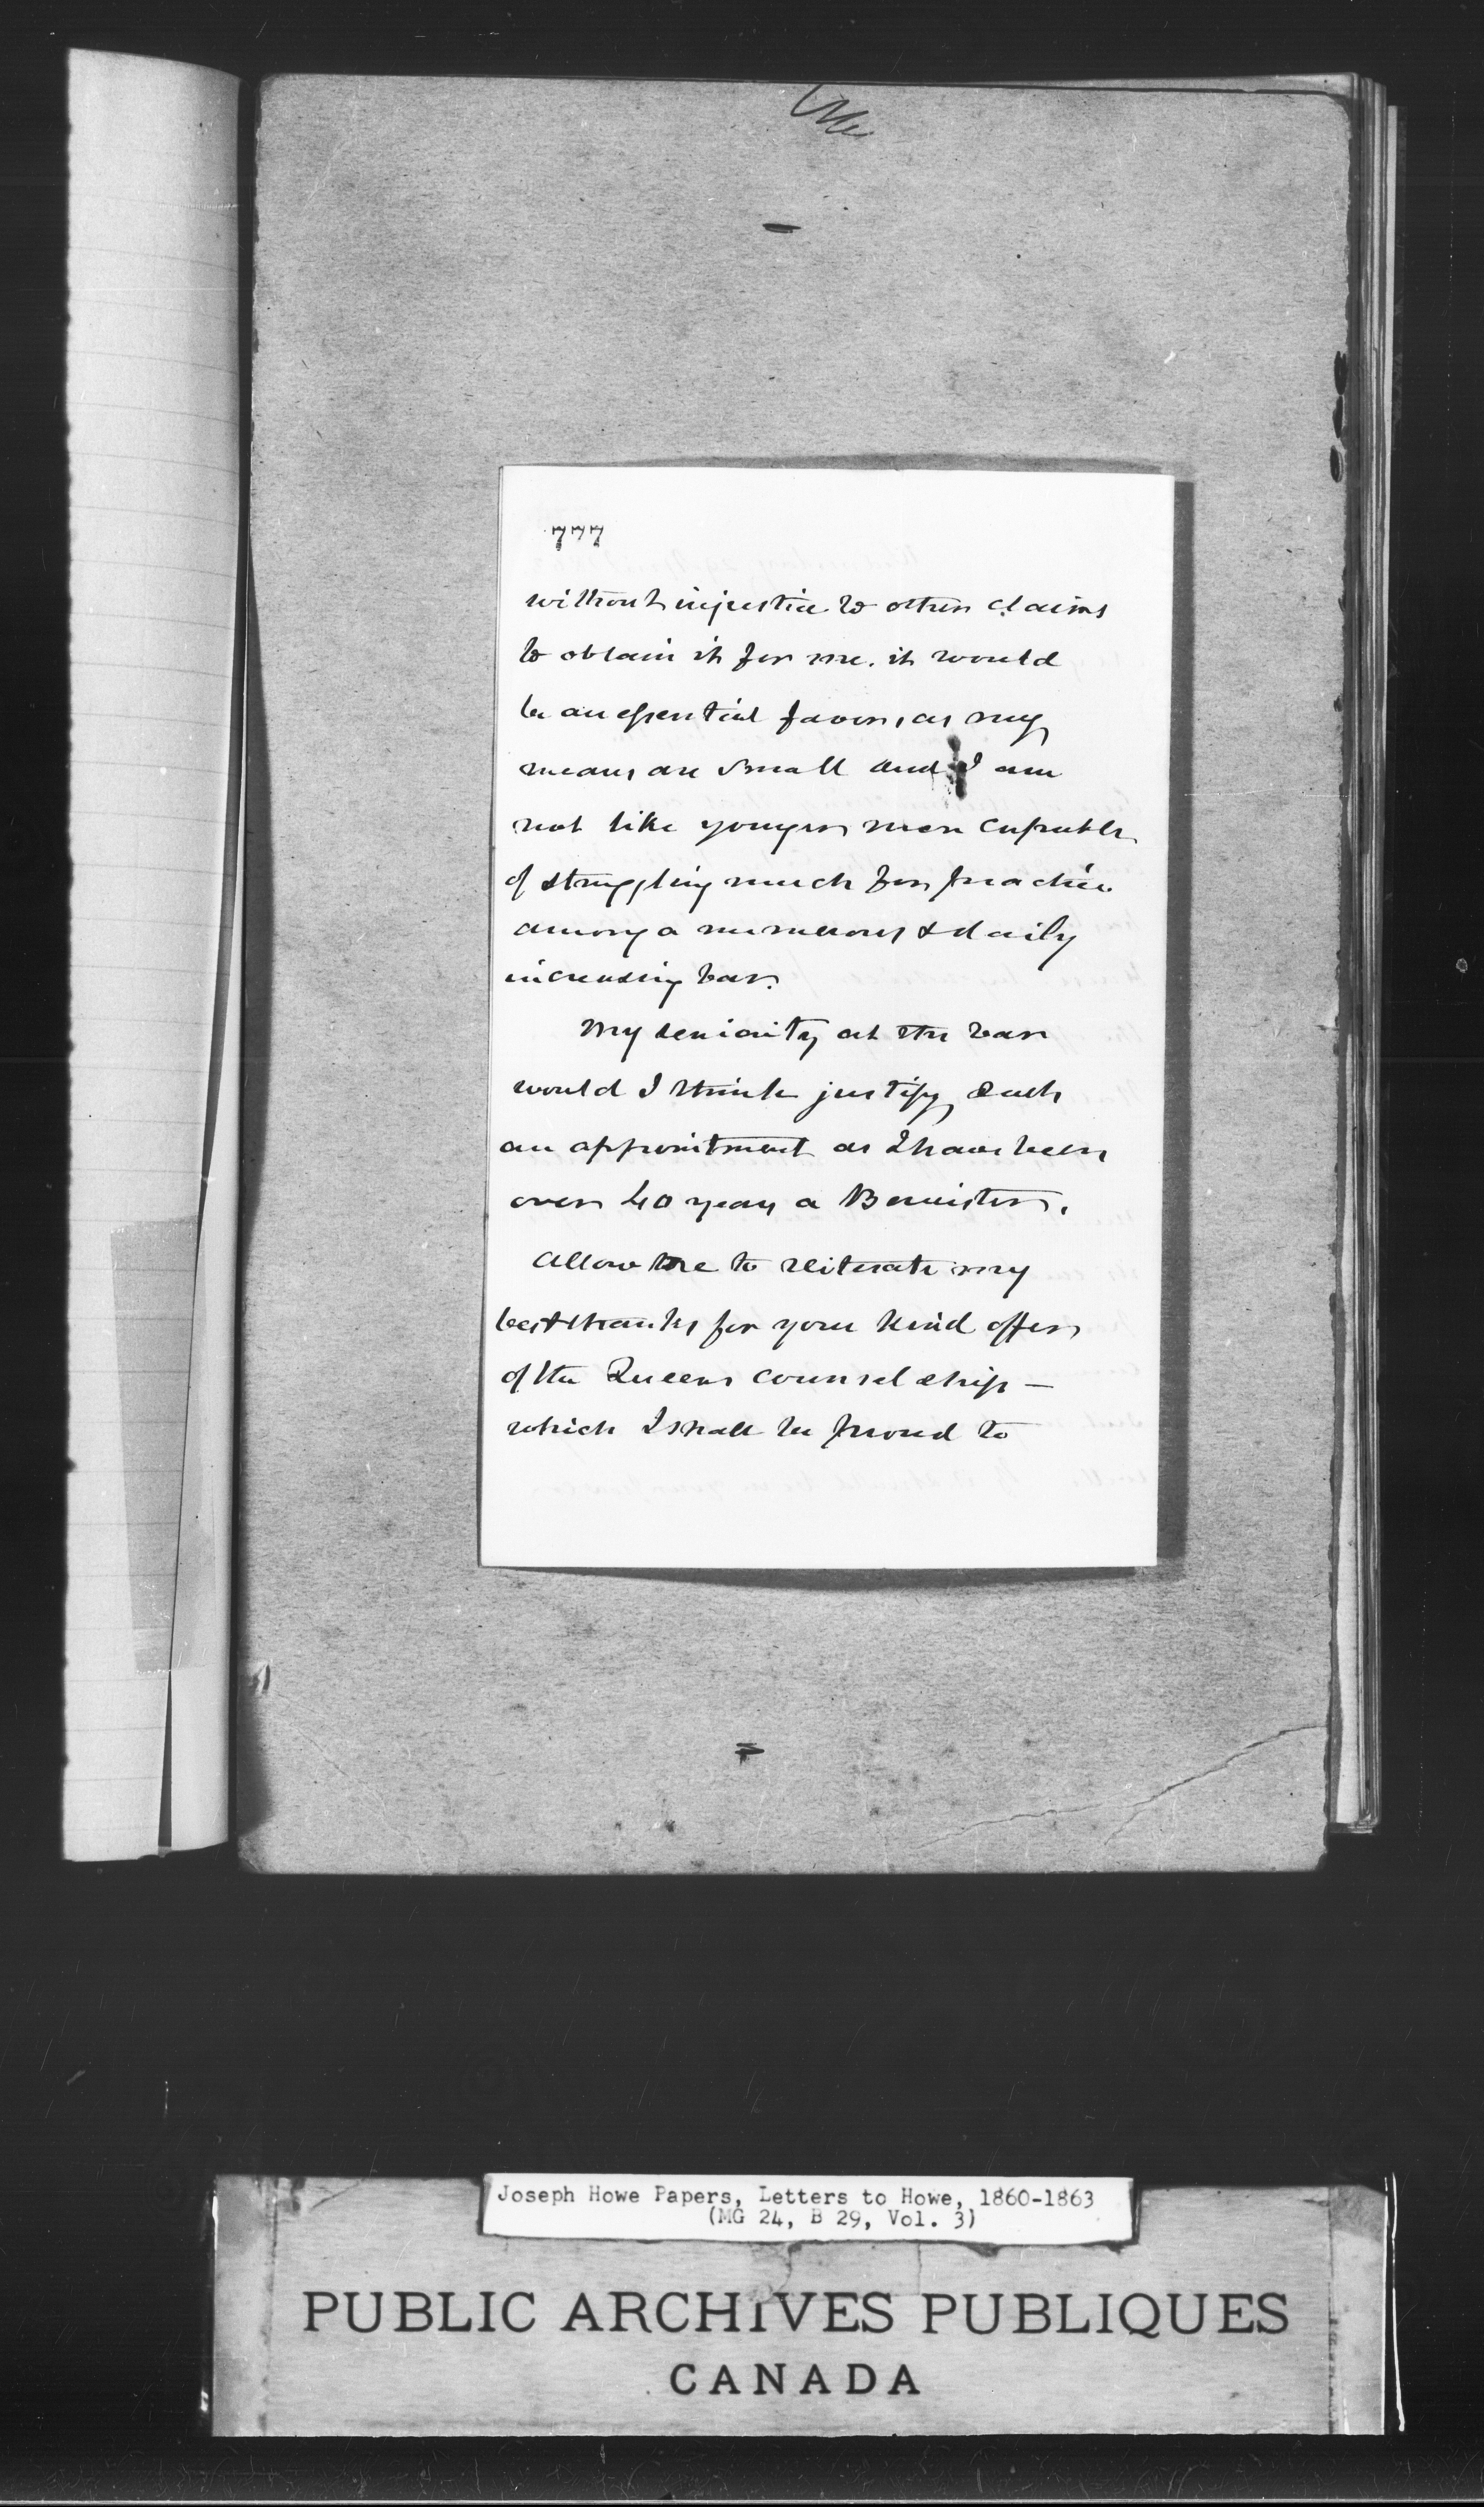 777
without injustice to other claims
to obtain it for me. it would
be an essential favor, as my
means are small and I am
not like younger men capable
of struggling much for practice
among a numerous & daily
increasing bar.
My seniority at the bar
would I think justify such
an appointment as I have been
over 40 years a Barrister.
Allow me to reiterate my
best thanks for your kind offer
of the Queens counselship —
which I shall be proud to
Joseph Howe Papers, Letters to Howe, 1860-1863
(MG 24, B 29, Vol. 3)
PUBLIC ARCHIVES PUBLIQUES
CANADA